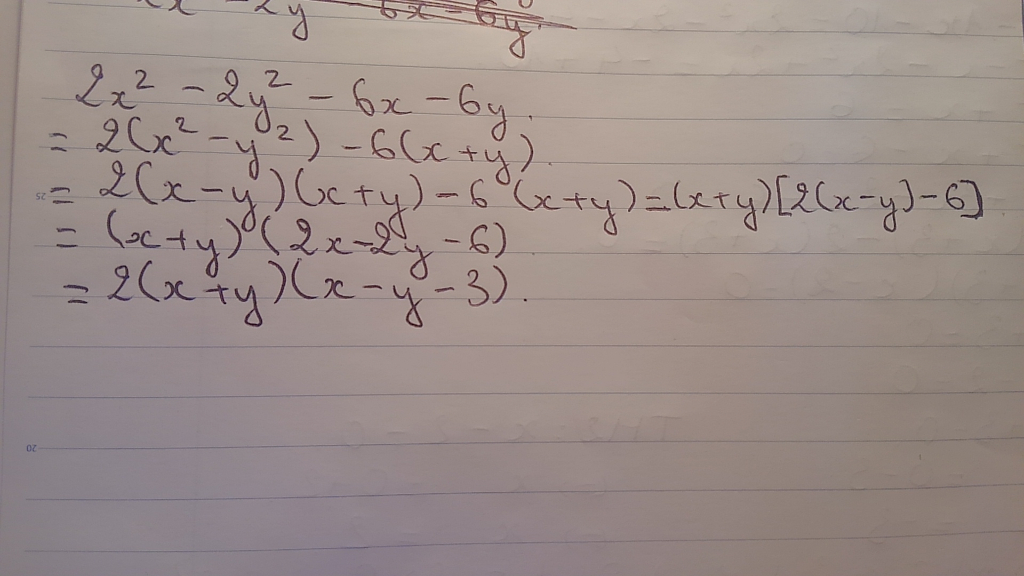 2x² - 2y² - 6x - 6y.
= 2(x² - y²) - 6(x + y).
= 2(x - y)(x + y) - 6(x + y) = (x + y)[2(x - y) - 6]
= (x + y)(2x - 2y - 6)
= 2(x + y)(x - y - 3).
20